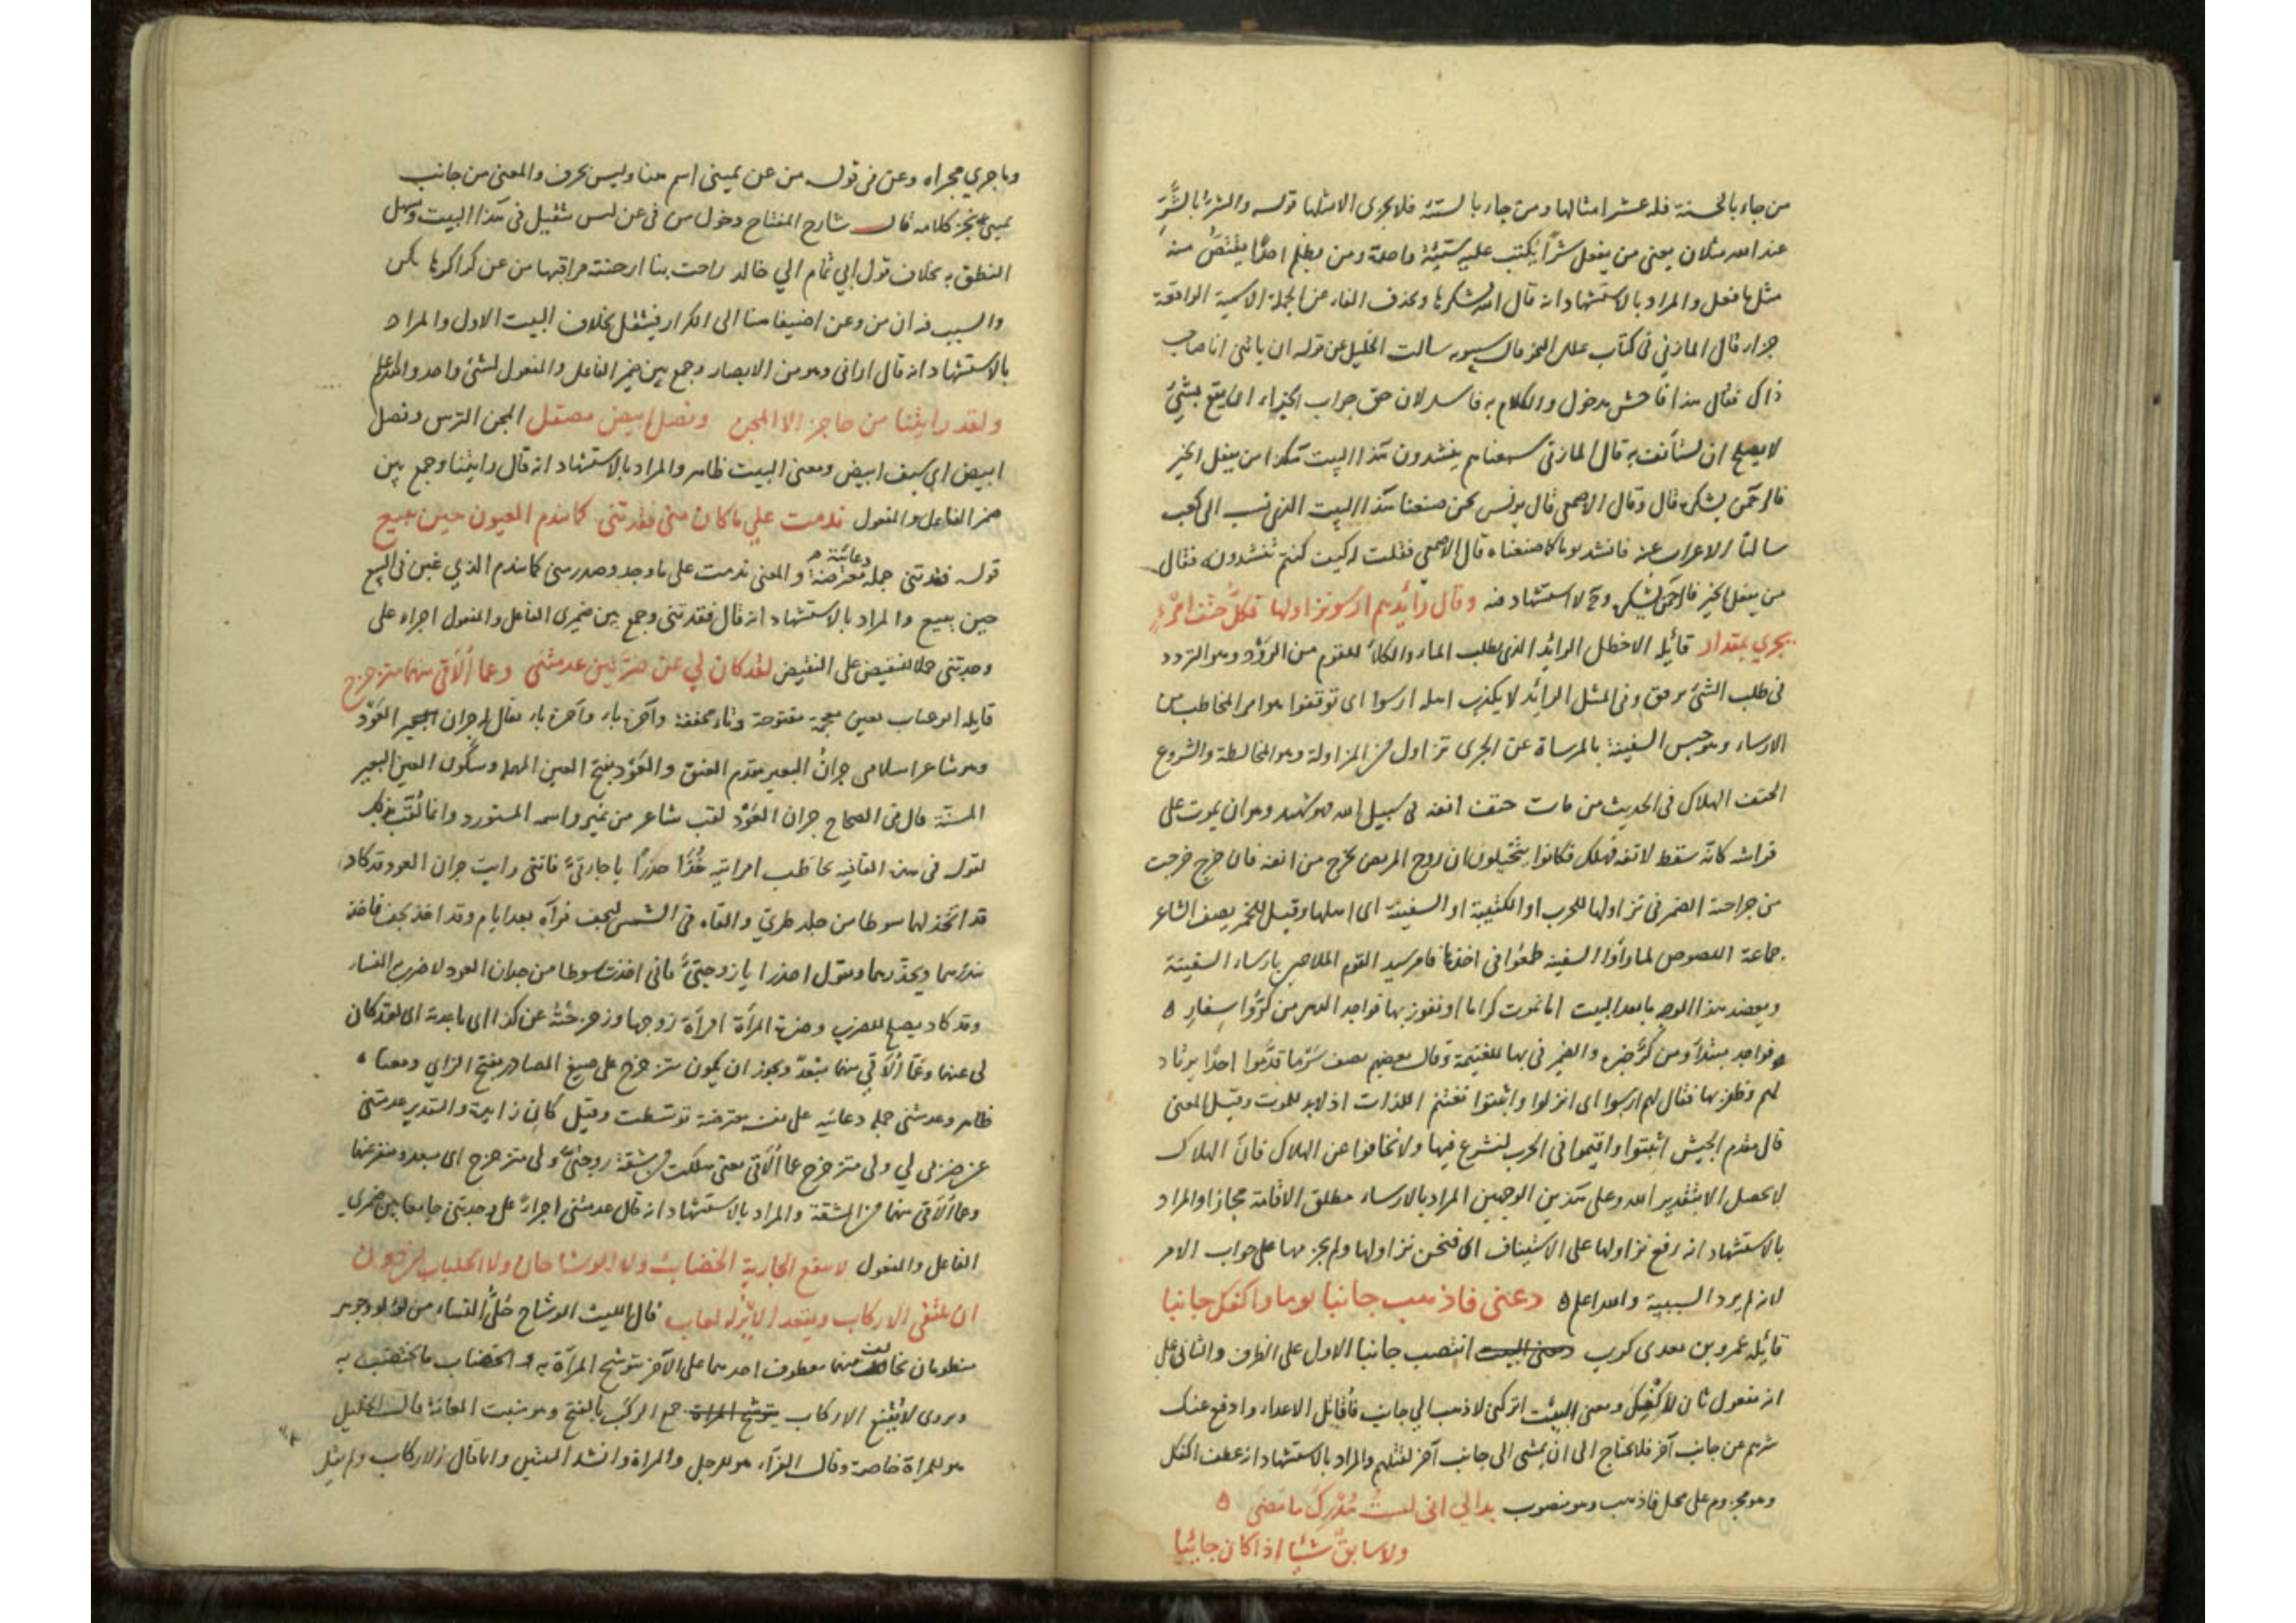 من جاء بالحسنة فله عشر امثالها ومن جاء بالسيئة فلا يجزى الا مثلها قوله والشرّ بالشّرّ
عند الله مثلان يعني من يفعل شرّا يكتب عليه سيّئة واحدة ومن يظلم احدًا يقتصّ منه
مثل ما فعل والمراد بالاستشهاد انه قال الله يشكرها وبحذف الفاء عن الجملة الاسمية الواقعة
جزاء قال المازني في كتاب علل النحو قال سيبويه سالت الخليل عن قوله ان ياتني انا صاحب
ذاك فقال هذا فاحش مدخول والكلام به فاسد لان حق جواب الجزاء ان يقع بشيء
لا يصلح ان يستأنف به قال المازني سمعناهم ينشدون هذا البيت هكذا من يفعل الخير
فالرحمن يشكره قال وقال الاصمعي قال يونس نحن صنعنا هذا البيت الذي نسب الى كعب
سالنا الاعراب عنه فانشدوه كما صنعناه قال الاصمعي فقلت له كيف كنتم تنشدونه فقال
من يفعل الخير فالرحمن يشكره و ح لا استشهاد فيه وقال رائدهم ارسوا نزاولها فكلّ حتف امرئ
يجري بمقدار قائله الاخطل الرائد الذي يطلب الماء والكلاء للقوم من الرود وهو التردد
في طلب الشيء برفق وفي المثل الرائد لا يكذب اهله ارسوا اى توقفوا هو امر المخاطب من
الارساء وهو حبس السفينة بالمرساة عن الجرى نزاول من المزاولة وهو المخالطة والشروع
الحتف الهلاك في الحديث من مات حتف انفه في سبيل الله فهو شهيد وهو ان يموت على
فراشه كانه سقط لانفه فهلك فكانوا يتخيلون ان روح المريض تخرج من انفه فان جرح خرجت
من جراحته الضمير في نزاولها للحرب او الكتيبة او السفينة اى اهلها وقيل للخمر يصف الشاعر
جماعة اللصوص لما رأوا السفينة طمعوا في اخذها فامر سيد القوم الملاحين بارساء السفينة
ويعضد هذا الوجه ما بعد البيت اما نموت كراما او نفوز بها فواحد الدهر من كرّ واسفار
فواحد مبتدأ ومن كرّ خبره والضمير في بها للغنيمة وقال بعضهم يصف شربا قدّموا احدًا يرتاد
لهم وظفر بها فقال لهم ارسوا اى انزلوا واثبتوا نغتنم اللذات اذ لابد للموت وقيل المعنى
قال مقدم الجيش اثبتوا واقيموا في الحرب لنشرع فيها ولا تخافوا عن الهلاك فان الهلاك
لا يحصل الا بتقدير الله وعلى هذين الوجهين المراد بالارساء مطلق الاقامة مجازا والمراد
بالاستشهاد انه رفع نزاولها على الاستيناف اى فنحن نزاولها ولم يجزمها على جواب الامر
لانه لم يرد السببية والله اعلم دعني فاذهب جانبا يوما واكفك جانبا
قائله عمرو بن معدى كرب انتصب جانبا الاول على الظرف والثاني على
انه مفعول ثان لاكفك ومعنى البيت اتركني لاذهب الى جانب فاقاتل الاعداء وادفع عنك
شرهم عن جانب آخر فلا يحتاج الى ان يمشى الى جانب آخر لقتلهم والمراد بالاستشهاد انه عطف اكفك
وهو مجزوم على محل فاذهب وهو منصوب بدا لي انى لست مدرك ما مضى
ولا سابق شيئا اذا كان جائيا
وما جرى مجراه وعن في قوله من عن يميني اسم هنا وليس بحرف والمعنى من جانب
يميني نجز كلامه قال شارح المفتاح دخول من في عن ليس بثقيل في هذا البيت وسهل
النطق به بخلاف قول ابي تمام الى خالد راحت بنا ارحبية مراقبها من عن كراكرها نكس
والسبب فيه ان من وعن اضيفا هنا الى الكراكر فيثقل بخلاف البيت الاول والمراد
بالاستشهاد انه قال اراني وهو من الابصار وجمع بين ضمير الفاعل والمفعول لشيء واحد والله اعلم
ولقد رايتنا من حاجز الا المجن ونصل ابيض مصقل المجن الترس ونصل
ابيض اي سيف ابيض ومعنى البيت ظاهر والمراد بالاستشهاد انه قال رايتنا وجمع بين
ضمير الفاعل والمفعول ندمت على ما كان مني فقدتني كما يندم المغبون حين يبيع
قوله فقدتني جملة معترضة دعائية والمعنى ندمت على ما وجد وصدر مني كما يندم الذي غبن في البيع
حين يبيع والمراد بالاستشهاد انه قال فقدتني وجمع بين ضميري الفاعل والمفعول اجراء على
وجدتني حملا للنقيض على النقيض لقد كان لي عن ضرّتين عدمتني وعما ألاقي منهما متزحزح
قايله ابو عتاب بعين معجمة مفتوحة وتاء مخففة وآخره باء يقال له جران العود
وهو شاعر اسلامي جران البعير مقدم العنق والعود بفتح العين المهملة وسكون العين البعير
المسنّة قال في الصحاح جران العود لقب شاعر من نمير واسمه المستورد وانما لقّب بذلك
لقوله في هذه القافية يخاطب امراتيه خذا حذرًا يا جارتيّ فانني رايت جران العود قد كاد
قد اتخذ لهما سوطا من جلد طريّ والقاه في الشمس ليجف فرآه بعد ايام وقد اخذ يجف فاخذ
ينذرهما ويحذرهما ويقول احذرا يا زوجتيّ فاني اخذت سوطا من جران العود لاضرب النساء
وقد كاد يصلح للضرب وضرة المرأة امرأة زوجها وزحزحته عن كذا اى باعدته اى لقد كان
لي عنهما وعمّا ألاقي منهما مبتعد ويجوز ان يكون متزحزح على صيغة المصادر بفتح الزاى ومعناه
ظاهر وعدمتني جملة دعائيه على نفسه معترضة توسّطت وقيل كان زايدة والتقدير عدمتني
عن ضرتي لي ولي متزحزح عما ألاقي يعني هلكت من مشقة زوجتيّ ولي متزحزح اى مبعد ومفر عنهما
وعما ألاقي منهما من المشقة والمراد بالاستشهاد انه قال عدمتني اجراءً على وجدتني جامعا بين ضميرى
الفاعل والمفعول لا ينفع الجارية الخضاب ولا الوشاحان ولا الجلباب من دون
ان تلتقى الاركاب ويقعد الاير له لعاب قال الليث الوشاح حلىّ النساء من لؤلؤ وجوهر
منظومان تخالف منهما معطوف احدهما على الآخر تتوشح المرأة به و الخضاب ما يختضب به
ويروى لا يقنع الاركاب جمع الركب بالفتح وهو منبت العانة قال الخليل
هو للمراة خاصة وقال الفرّاء هو للرجل والمراة وانشد البيتين وانما قال الاركاب ولم يقل